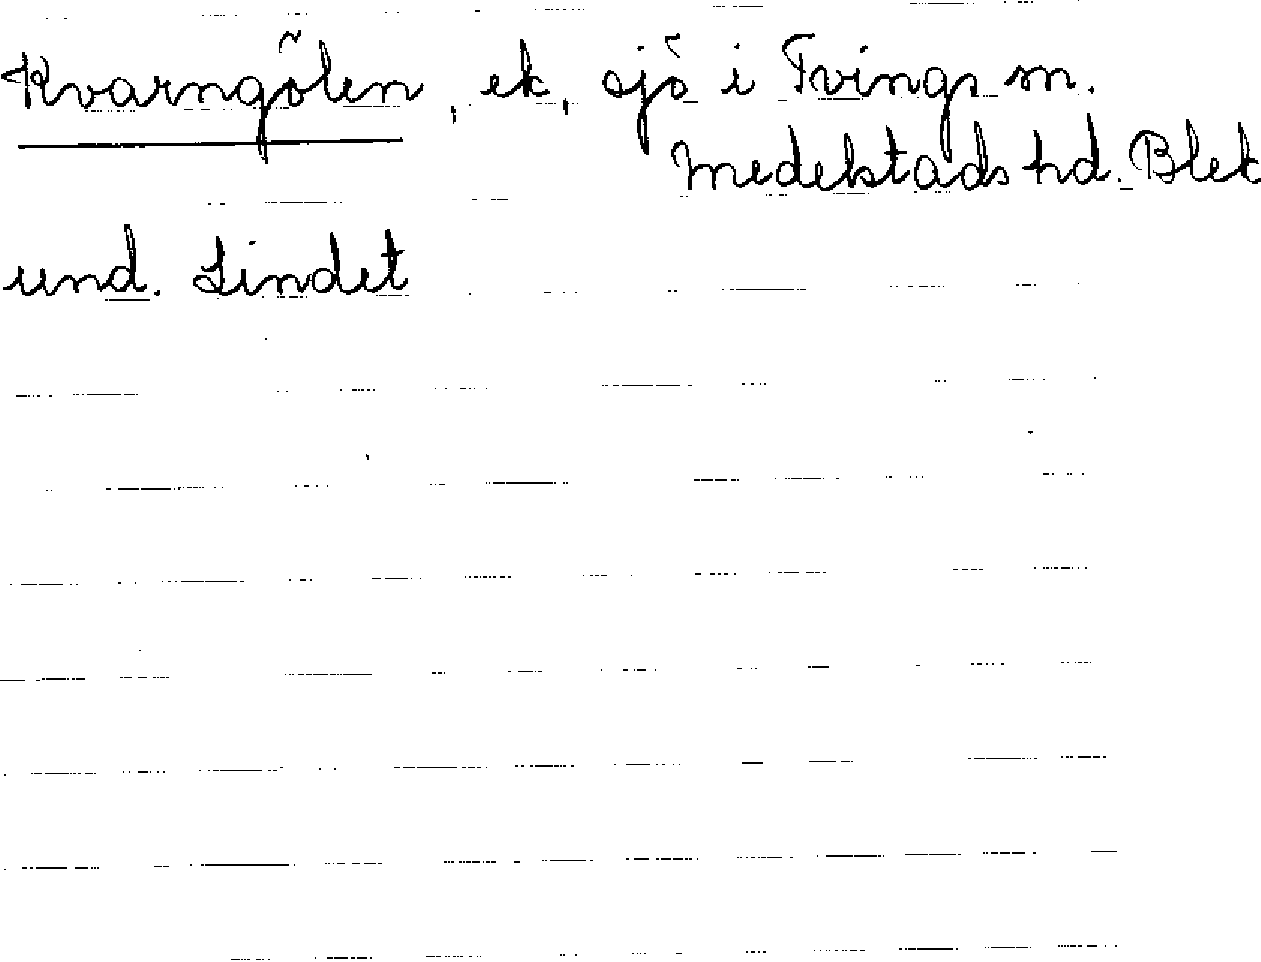 Kvarngölen, ek, sjö i Tvings sn.
Medelstads hd. Blek
und. Lindet